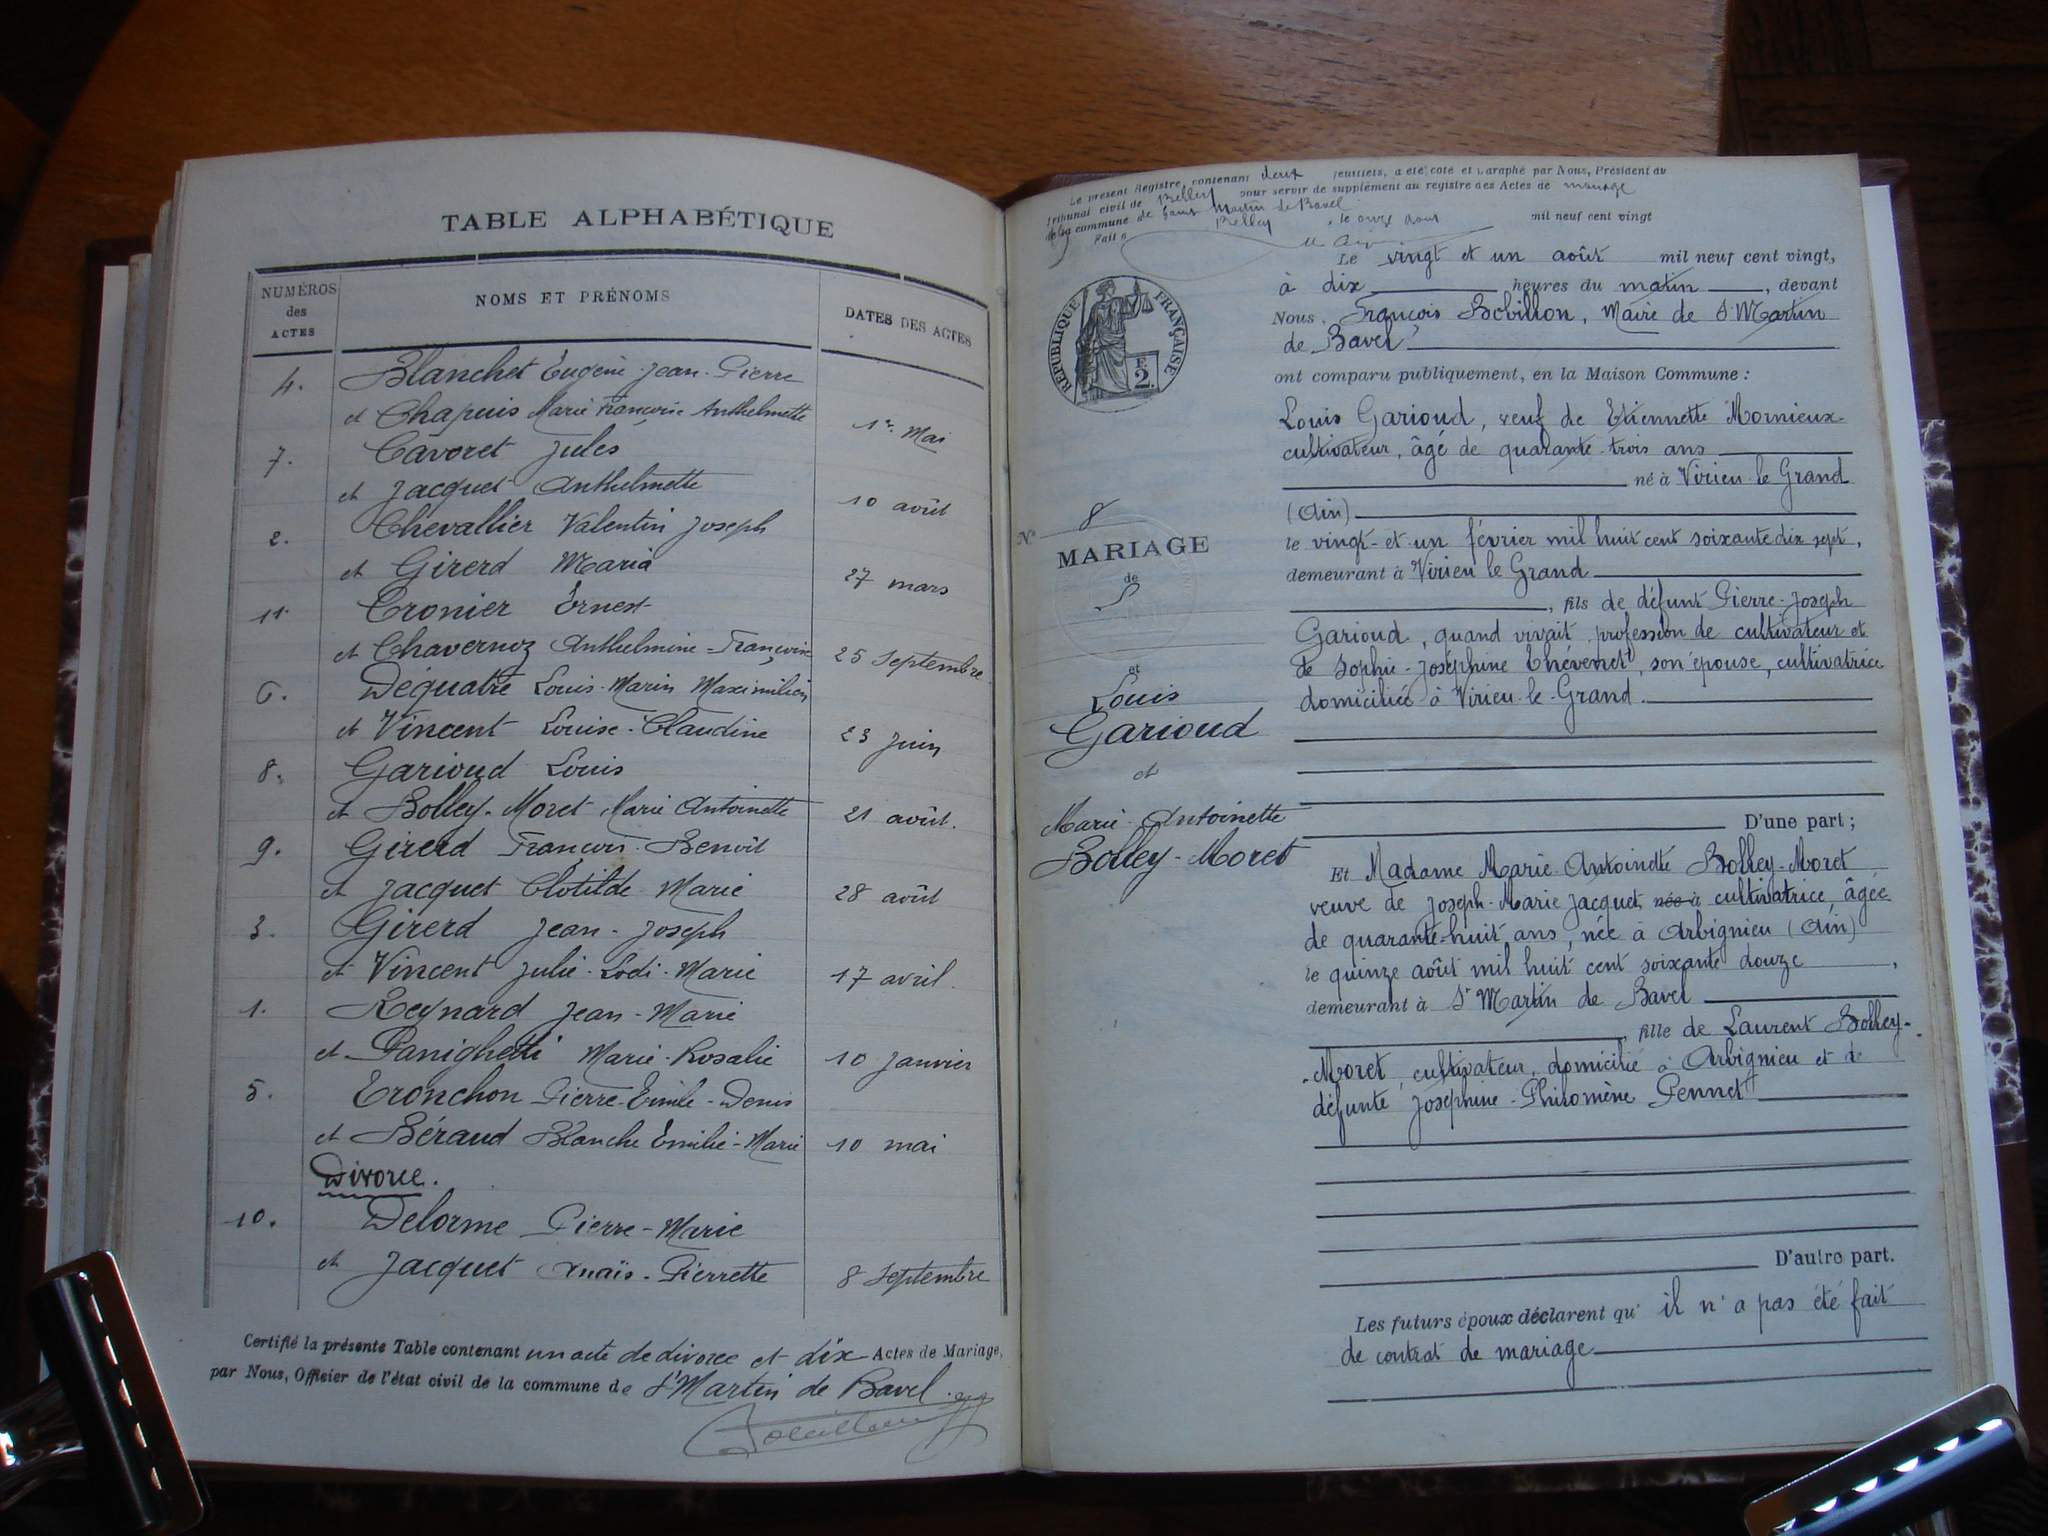 TABLE ALPHABÉTIQUE
NUMÉROS
des
ACTES
NOMS ET PRÉNOMS
DATES DES ACTES
4. Blanchet Eugène-Jean-Pierre
et Chapuis Marie Françoise Anthelmette 1er Mai
7. Cavoret Jules
et Jacquet Anthelmette 10 août
2. Chevallier Valentin Joseph
et Girerd Maria 27 mars
11. Cronier Ernest
et Chavernoz Anthelmine-Françoise 25 Septembre
6. Dequatre Louis-Marin Maximilien
et Vincent Louise-Claudine 23 juin
8. Garioud Louis
et Bolley-Moret Marie Antoinette 21 août.
9. Girerd François-Benoît
et Jacquet Clotilde Marie 28 août
3. Girerd Jean-Joseph
et Vincent Julie-Lodi-Marie 17 avril.
1. Reynard Jean-Marie
et Panighetti Marie-Rosalie 10 janvier
5. Tronchon Pierre-Emile-Denis
et Béraud Blanche Emilie-Marie 10 mai
Divorce.
10. Delorme Pierre-Marie
et Jacquet Anaïs-Pierrette 8 Septembre
Certifié la présente Table contenant un acte de divorce et dix Actes de Mariage,
par Nous, Officier de l'état civil de la commune de St Martin de Bavel.
Le présent Registre, contenant deux feuillets, a été coté et paraphé par Nous, Président du
Tribunal civil de Belley pour servir de supplément au registre des Actes de mariage
de la commune de Saint Martin de Bavel
Fait à Belley, le onze août mil neuf cent vingt
RÉPUBLIQUE FRANÇAISE
F.
2.
N° 8
MARIAGE
de
et
Louis
Garioud
et
Marie-Antoinette
Bolley-Moret
Le vingt et un août mil neuf cent vingt,
à dix heures du matin, devant
Nous, François Bobillon, Maire de St Martin
de Bavel
ont comparu publiquement, en la Maison Commune :
Louis Garioud, veuf de Etiennette Mornieux
cultivateur, âgé de quarante-trois ans
né à Virieu-le-Grand
(Ain)
le vingt-et-un février mil huit cent soixante dix sept,
demeurant à Virieu le Grand
, fils de défunt Pierre-Joseph
Garioud, quand vivait profession de cultivateur et
de Sophie-Joséphine Thévenet, son épouse, cultivatrice
domiciliée à Virieu-le-Grand.
D'une part ;
Et Madame Marie-Antoinette Bolley-Moret
veuve de Joseph-Marie Jacquet, née à cultivatrice, âgée
de quarante-huit ans, née à Arbignieu (Ain)
le quinze août mil huit cent soixante douze,
demeurant à St Martin de Bavel
, fille de Laurent Bolley-
-Moret, cultivateur, domicilié à Arbignieu et de
défunte Joséphine-Philomène Pennet
D'autre part.
Les futurs époux déclarent qu'il n'a pas été fait
de contrat de mariage